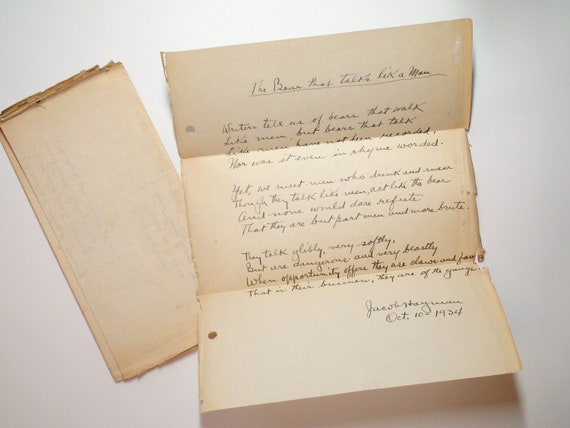 The Bear that talks like a Man
Writers tell us of bears that walk
Like men, but bears that talk
Like men have not been recorded,
Nor was it even in rhyme worded.
Yet, we meet men who drink and swear
Though they talk like men, act like the bear
And none would dare refute
That they are but part men and more brute.
They talk glibly, very softly,
But are dangerous and very beastly
When opportunity offers they use claws and fangs
That is their business, they are of the gangs.
Jacob Hayman
Oct. 10 1934